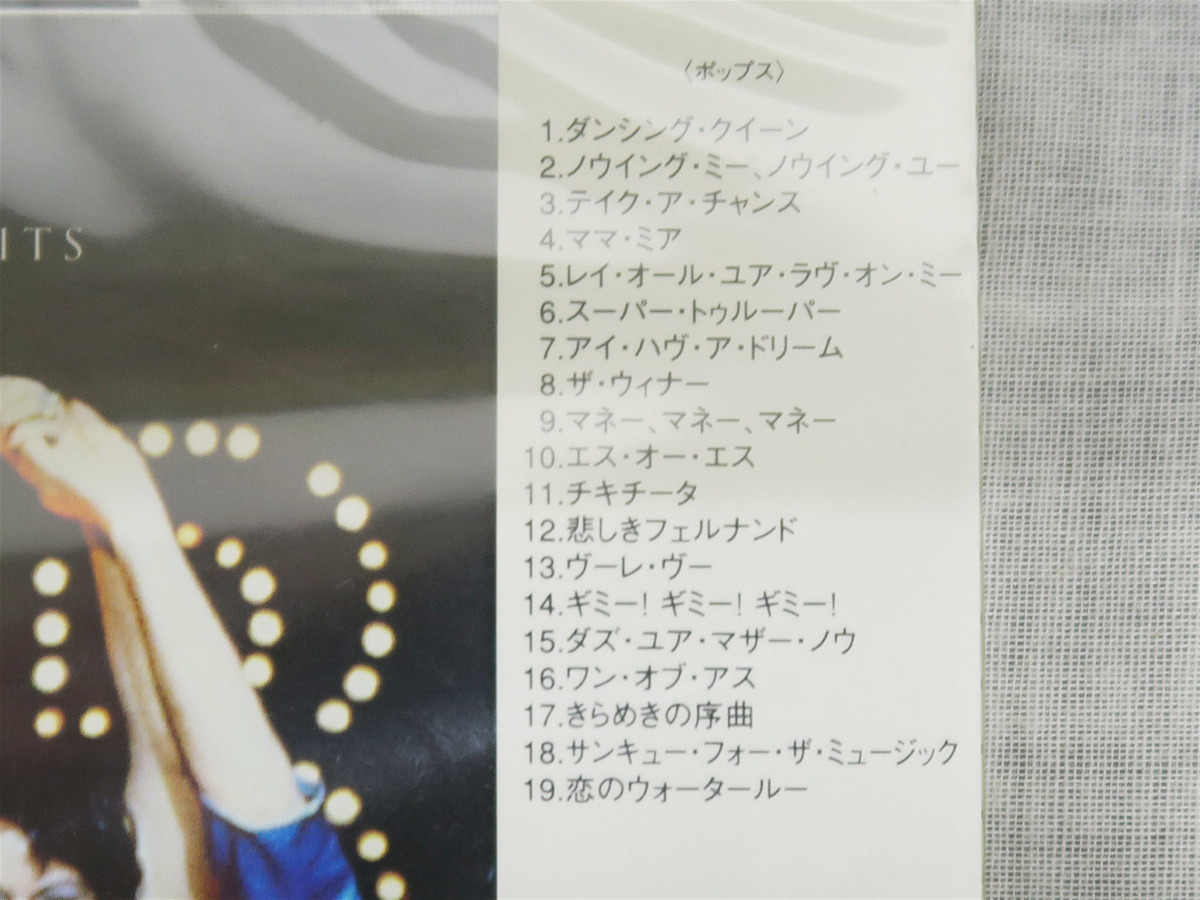 ITS
〈ポップス〉
1.ダンシング・クイーン
2.ノウイング・ミー、ノウイング・ユー
3.テイク・ア・チャンス
4.ママ・ミア
5.レイ・オール・ユア・ラヴ・オン・ミー
6.スーパー・トゥルーパー
7.アイ・ハヴ・ア・ドリーム
8.ザ・ウィナー
9.マネー、マネー、マネー
10.エス・オー・エス
11.チキチータ
12.悲しきフェルナンド
13.ヴーレ・ヴー
14.ギミー! ギミー! ギミー!
15.ダズ・ユア・マザー・ノウ
16.ワン・オブ・アス
17.きらめきの序曲
18.サンキュー・フォー・ザ・ミュージック
19.恋のウォータールー